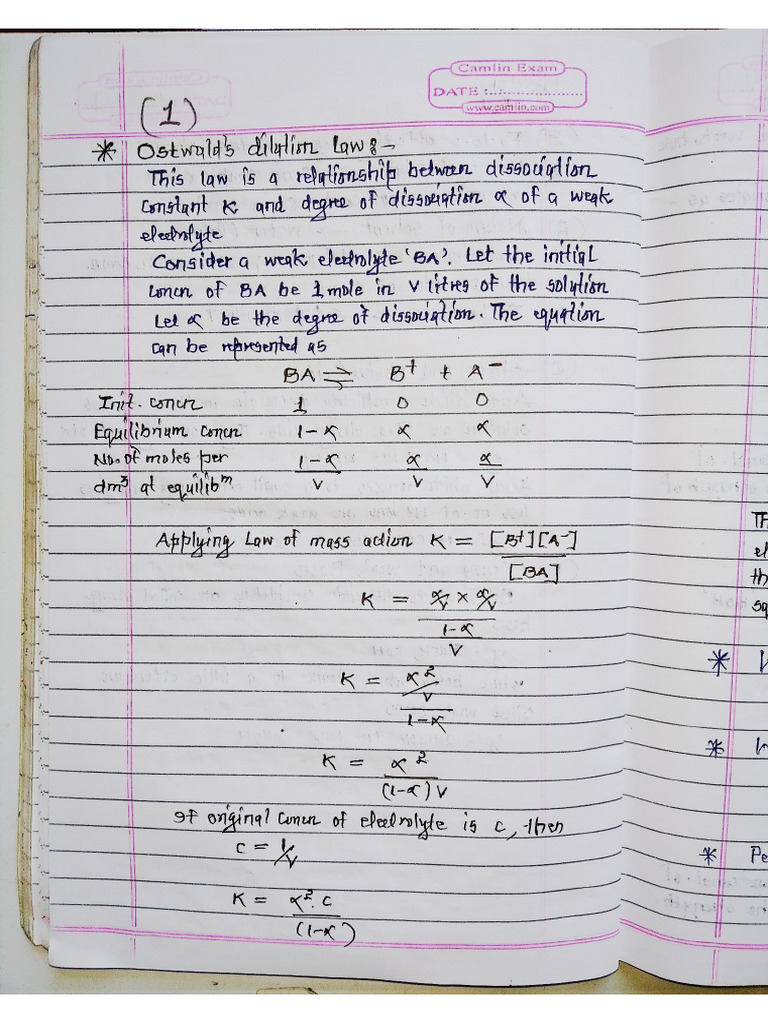 Camlin Exam
DATE :
www.camlin.com
(1)
* Ostwald's dilution law :-
This law is a relationship between dissociation
constant K and degree of dissociation α of a weak
electrolyte
Consider a weak electrolyte 'BA'. Let the initial
concn of BA be 1 mole in V litres of the solution
Let α be the degree of dissociation. The equation
can be represented as
BA ⇌ B⁺ + A⁻
Init. concn 1 0 0
Equilibrium concn 1-α α α
No. of moles per 1-α/V α/V α/V
dm³ at equilibᵐ
Applying Law of mass action K = [B⁺][A⁻]/[BA]
K = (α/V × α/V)/((1-α)/V)
K = (α²/V)/(1-α)
K = α²/((1-α)V)
If original concn of electrolyte is c, then
c = 1/V
K = α².c/(1-α)
Th
el
th
sq
*
*
* Pe